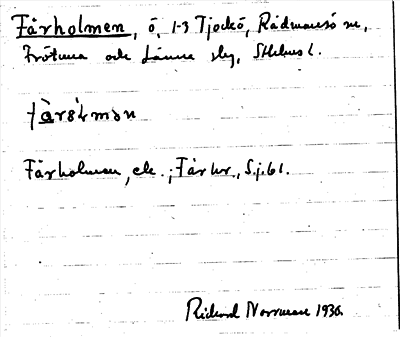 Fårholmen, ö, 1-3 Tjockö, Rådmansö sn,
Frötuna och Länna slg, Sthlms l.
Fårholmen, ek.; Fårhr., S.j.61.
Rickard Norrman 1936.